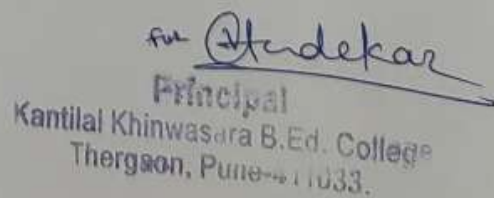 for
Principal
Kantilal Khinwasara B.Ed. College
Thergaon, Pune-411033.